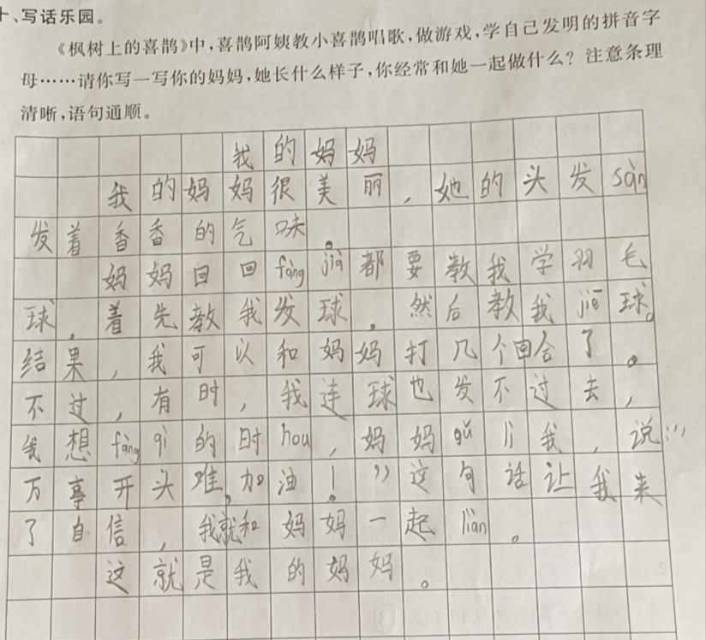 十、写话乐园。
《枫树上的喜鹊》中,喜鹊阿姨教小喜鹊唱歌,做游戏,学自己发明的拼音字
母……请你写一写你的妈妈,她长什么样子,你经常和她一起做什么？注意条理
清晰,语句通顺。
我的妈妈
我的妈妈很美丽，她的头发sàn
发着香香的气味。
妈妈回回fàng jià都要教我学羽毛
球，着先教我发球。然后教我jiē球。
结果，我可以和妈妈打几个回合了。
不过，有时，我连球也发不过去，
我想fàng qì的时hou，妈妈gǔ lì我，说：“
万事开头难，加油！”这句话让我来
了自信，我就和妈妈一起liàn。
这就是我的妈妈。